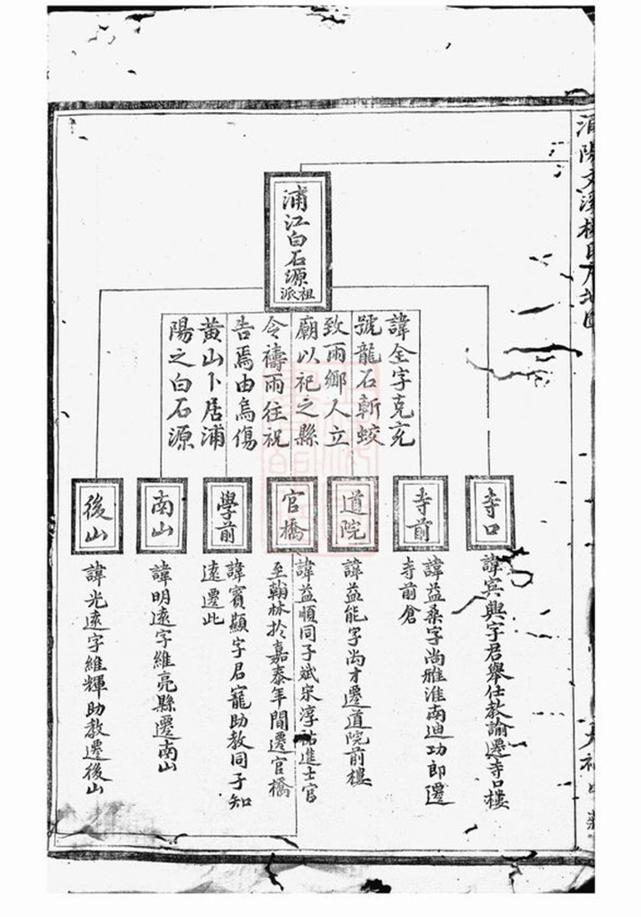 浦陽文溪楊氏
浦江白石源祖派
諱全字克充
號龍石斬蛟
致雨鄉人立
廟以祀之縣
令禱雨往祝
告焉由烏傷
黃山卜居浦
陽之白石源
寺口
諱賓興字君舉仕教諭遷寺口樓
寺前
諱益桑字尚雅淮南迪功郎遷
寺前倉
道院
諱益能字尚才遷道院前樓
官橋
諱益順同子斌宋淳祐進士官
至翰林於嘉泰年間遷官橋
學前
諱賓顯字君寵助教同子知
遠遷此
南山
諱明遠字維亮縣遷南山
後山
諱光遠字維輝助教遷後山